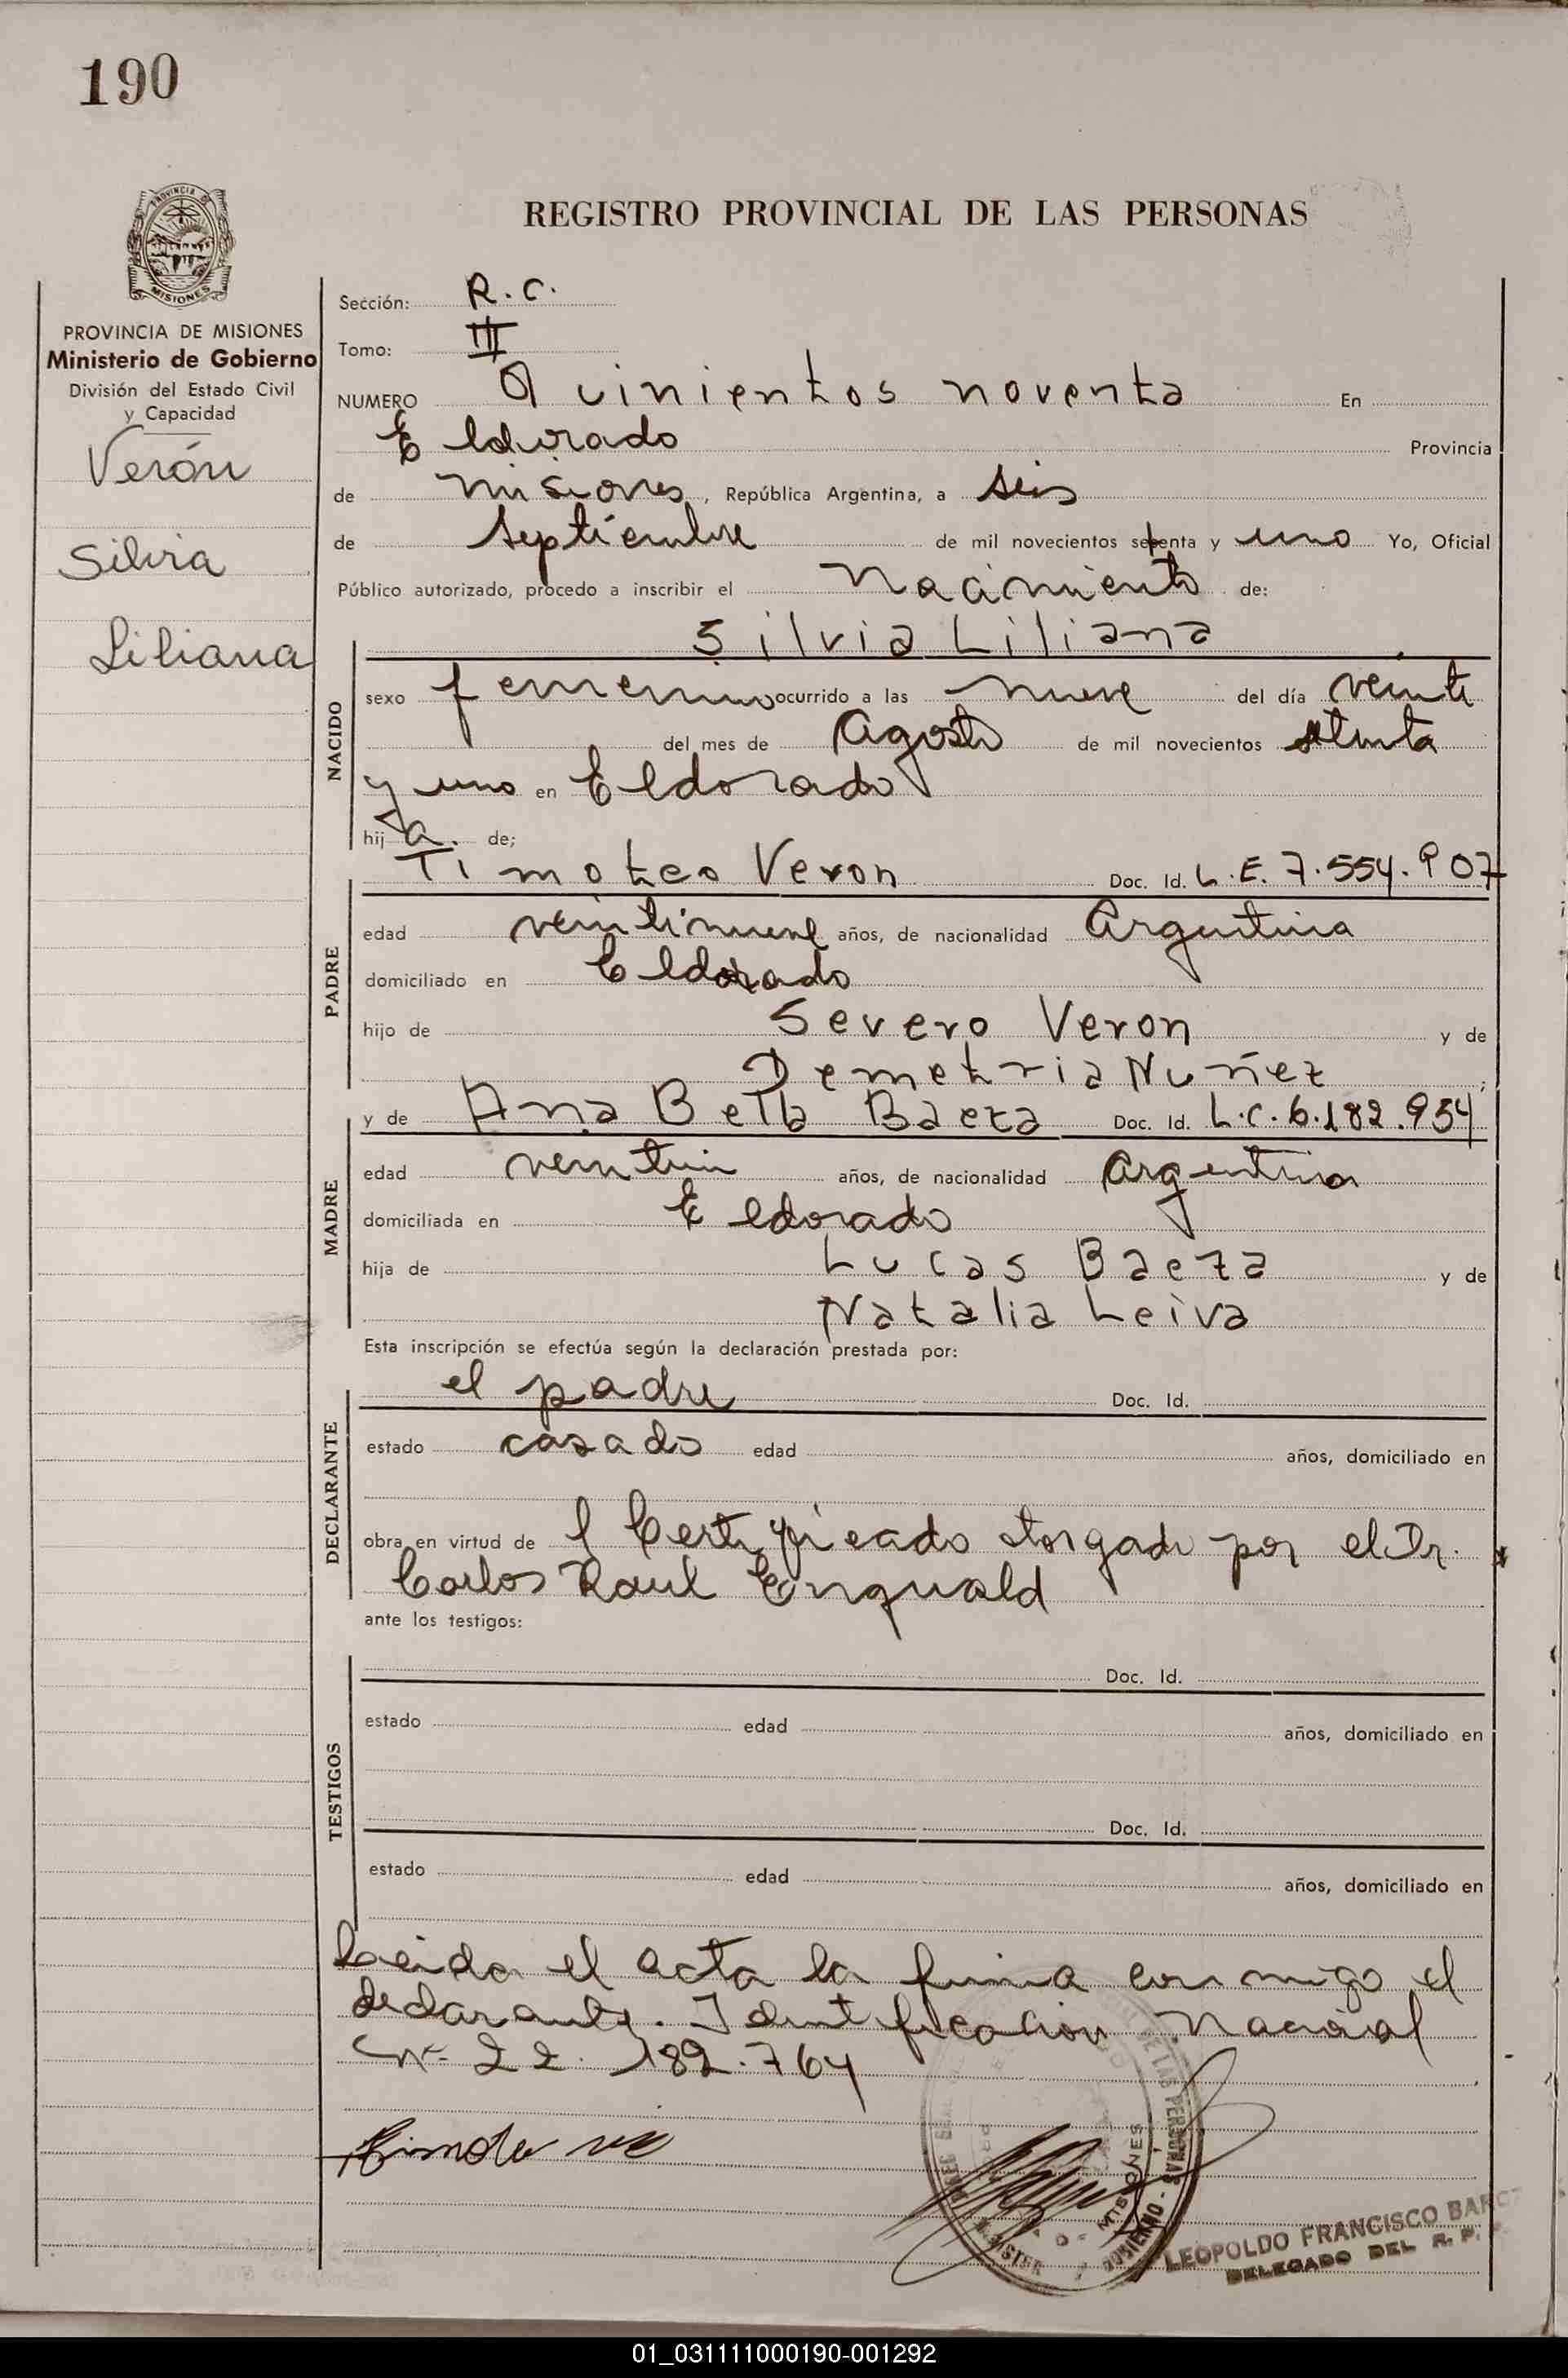 190
PROVINCIA DE MISIONES
Ministerio de Gobierno
División del Estado Civil
y Capacidad
Verón
Silvia
Liliana
REGISTRO PROVINCIAL DE LAS PERSONAS
Sección: R.C.
Tomo: III
NUMERO Quinientos noventa En
Eldorado Provincia
de misiones, República Argentina, a seis
de septiembre de mil novecientos setenta y uno Yo, Oficial
Público autorizado, procedo a inscribir el Nacimiento de:
Silvia Liliana
NACIDO
sexo femenino ocurrido a las nueve del día veinte
del mes de Agosto de mil novecientos setenta
y uno en Eldorado
hija. de;
PADRE
Timoteo Veron Doc. Id. L.E. 7.554.907
edad veintinueve años, de nacionalidad Argentina
domiciliado en Eldorado
hijo de Severo Veron y de
Demetria Nuñez;
MADRE
y de Ana Bella Baeza Doc. Id. L.C. 6.182.954
edad años, de nacionalidad Argentina
domiciliada en Eldorado
hija de Lucas Baeza y de
Natalia Leiva
Esta inscripción se efectúa según la declaración prestada por:
DECLARANTE
el padre Doc. Id.
estado casado edad años, domiciliado en
obra en virtud de l Certificado otorgado por el Dr.
Carlos Raul
ante los testigos:
TESTIGOS
Doc. Id.
estado edad años, domiciliado en
Doc. Id.
estado edad años, domiciliado en
Leida el acta la firma conmigo el
declarante. Identificacion Nacional
Nº 22.182.764
MISIONES
LEOPOLDO FRANCISCO
DELEGADO DEL R. P.
01_031111000190-001292